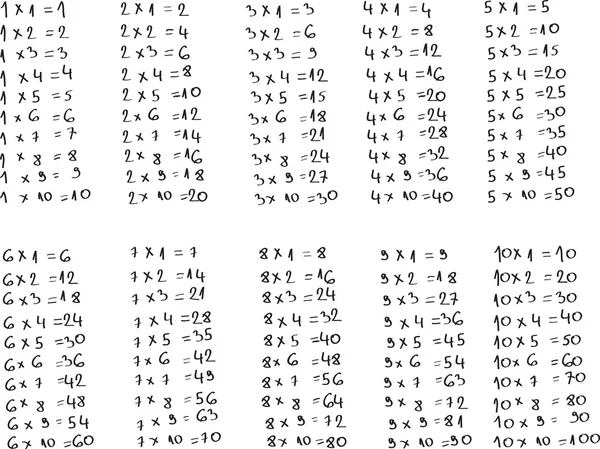 1 x 1 = 1
1 x 2 = 2
1 x 3 = 3
1 x 4 = 4
1 x 5 = 5
1 x 6 = 6
1 x 7 = 7
1 x 8 = 8
1 x 9 = 9
1 x 10 = 10
2 x 1 = 2
2 x 2 = 4
2 x 3 = 6
2 x 4 = 8
2 x 5 = 10
2 x 6 = 12
2 x 7 = 14
2 x 8 = 16
2 x 9 = 18
2 x 10 = 20
3 x 1 = 3
3 x 2 = 6
3 x 3 = 9
3 x 4 = 12
3 x 5 = 15
3 x 6 = 18
3 x 7 = 21
3 x 8 = 24
3 x 9 = 27
3 x 10 = 30
4 x 1 = 4
4 x 2 = 8
4 x 3 = 12
4 x 4 = 16
4 x 5 = 20
4 x 6 = 24
4 x 7 = 28
4 x 8 = 32
4 x 9 = 36
4 x 10 = 40
5 x 1 = 5
5 x 2 = 10
5 x 3 = 15
5 x 4 = 20
5 x 5 = 25
5 x 6 = 30
5 x 7 = 35
5 x 8 = 40
5 x 9 = 45
5 x 10 = 50
6 x 1 = 6
6 x 2 = 12
6 x 3 = 18
6 x 4 = 24
6 x 5 = 30
6 x 6 = 36
6 x 7 = 42
6 x 8 = 48
6 x 9 = 54
6 x 10 = 60
7 x 1 = 7
7 x 2 = 14
7 x 3 = 21
7 x 4 = 28
7 x 5 = 35
7 x 6 = 42
7 x 7 = 49
7 x 8 = 56
7 x 9 = 63
7 x 10 = 70
8 x 1 = 8
8 x 2 = 16
8 x 3 = 24
8 x 4 = 32
8 x 5 = 40
8 x 6 = 48
8 x 7 = 56
8 x 8 = 64
8 x 9 = 72
8 x 10 = 80
9 x 1 = 9
9 x 2 = 18
9 x 3 = 27
9 x 4 = 36
9 x 5 = 45
9 x 6 = 54
9 x 7 = 63
9 x 8 = 72
9 x 9 = 81
9 x 10 = 90
10 x 1 = 10
10 x 2 = 20
10 x 3 = 30
10 x 4 = 40
10 x 5 = 50
10 x 6 = 60
10 x 7 = 70
10 x 8 = 80
10 x 9 = 90
10 x 10 = 100